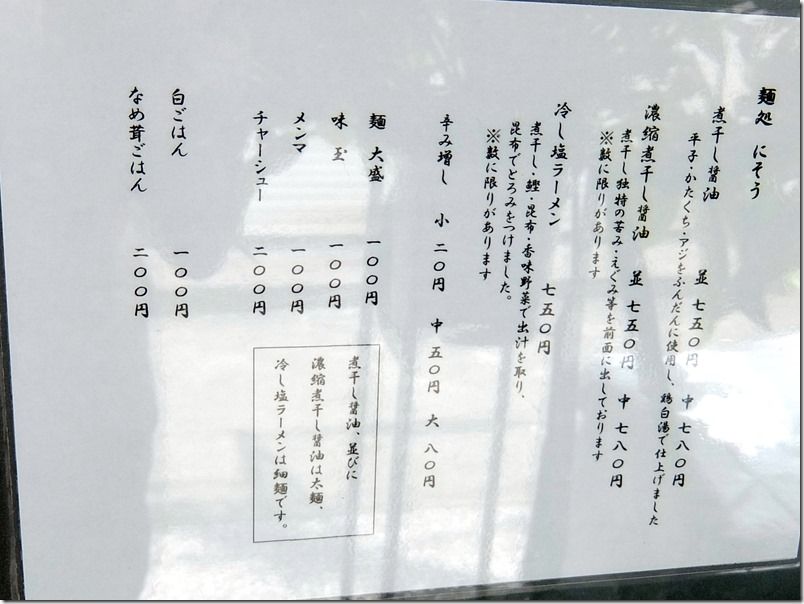 麺処 にそう
煮干し醤油 並 七五〇円 中 七八〇円
平子・かたくち・アジをふんだんに使用し、鶏白湯で仕上げました
濃縮煮干し醤油 並 七五〇円 中 七八〇円
煮干し独特の苦み・えぐみ等を前面に出しております
※数に限りがあります
冷し塩ラーメン 七五〇円
煮干し・鰹・昆布・香味野菜で出汁を取り、
昆布でとろみをつけました。
※数に限りがあります
辛み増し 小 二〇円 中 五〇円 大 八〇円
麺 大盛 一〇〇円
味 玉 一〇〇円
メンマ 一〇〇円
チャーシュー 二〇〇円
白ごはん 一〇〇円
なめ茸ごはん 二〇〇円
煮干し醤油、並びに
濃縮煮干し醤油は太麺、
冷し塩ラーメンは細麺です。